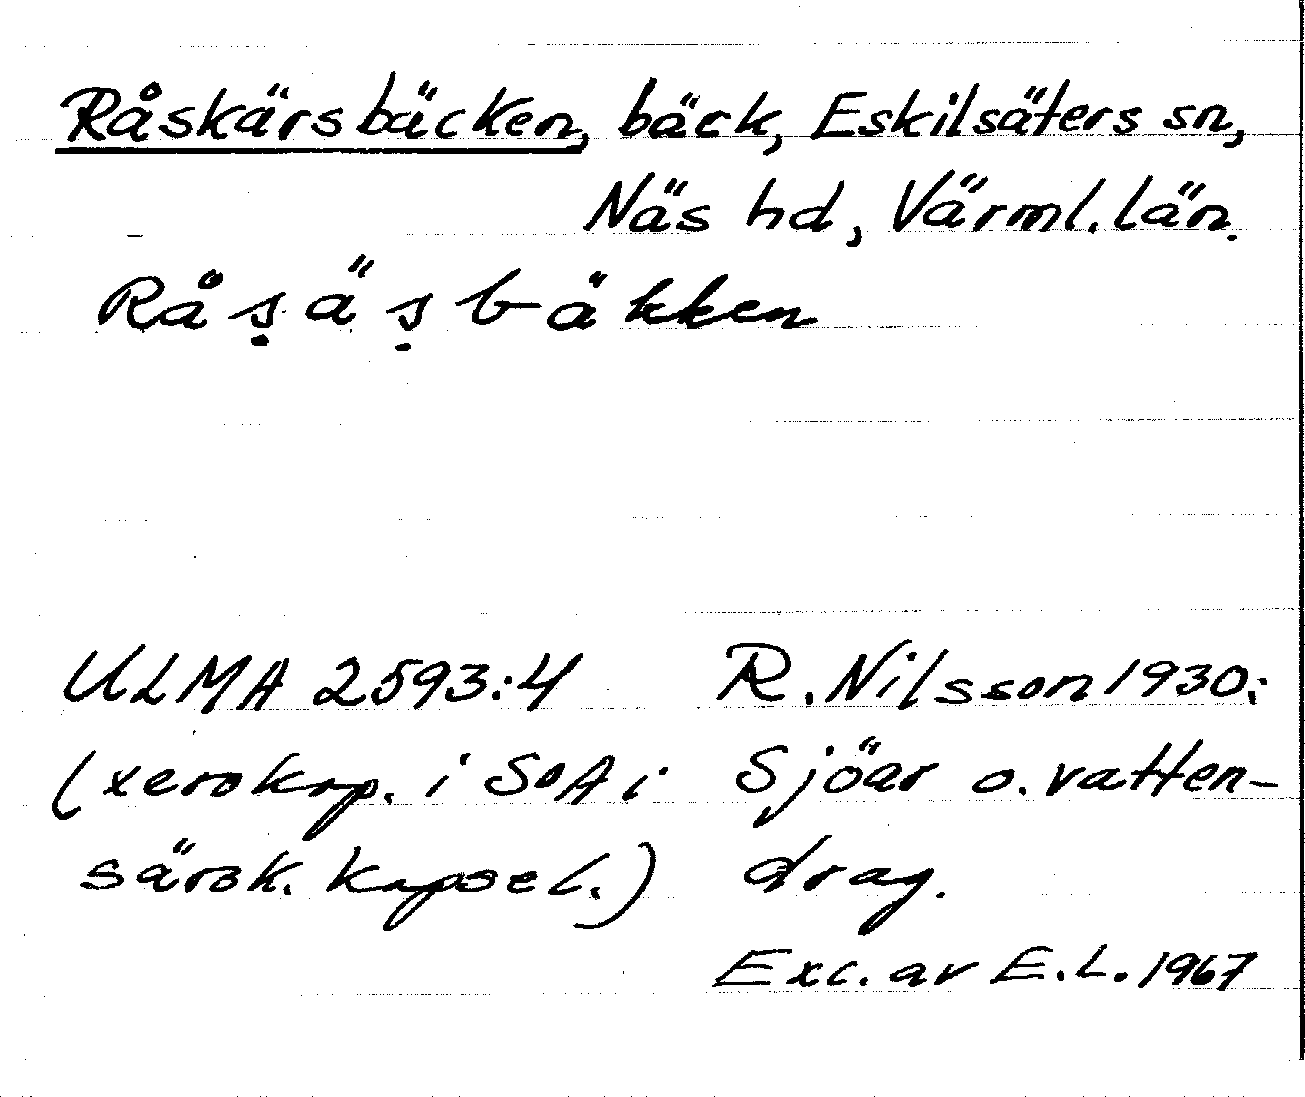 Råskärsbäcken, bäck, Eskilsäters sn,
Näs hd, Värml. län.
Råṣäṣbäkken
ULMA 2593:4
(xerokop. i SOA i
särsk. kapsel.)
R. Nilsson 1930:
Sjöar o. vatten-
drag.
Exc. av E.L. 1967